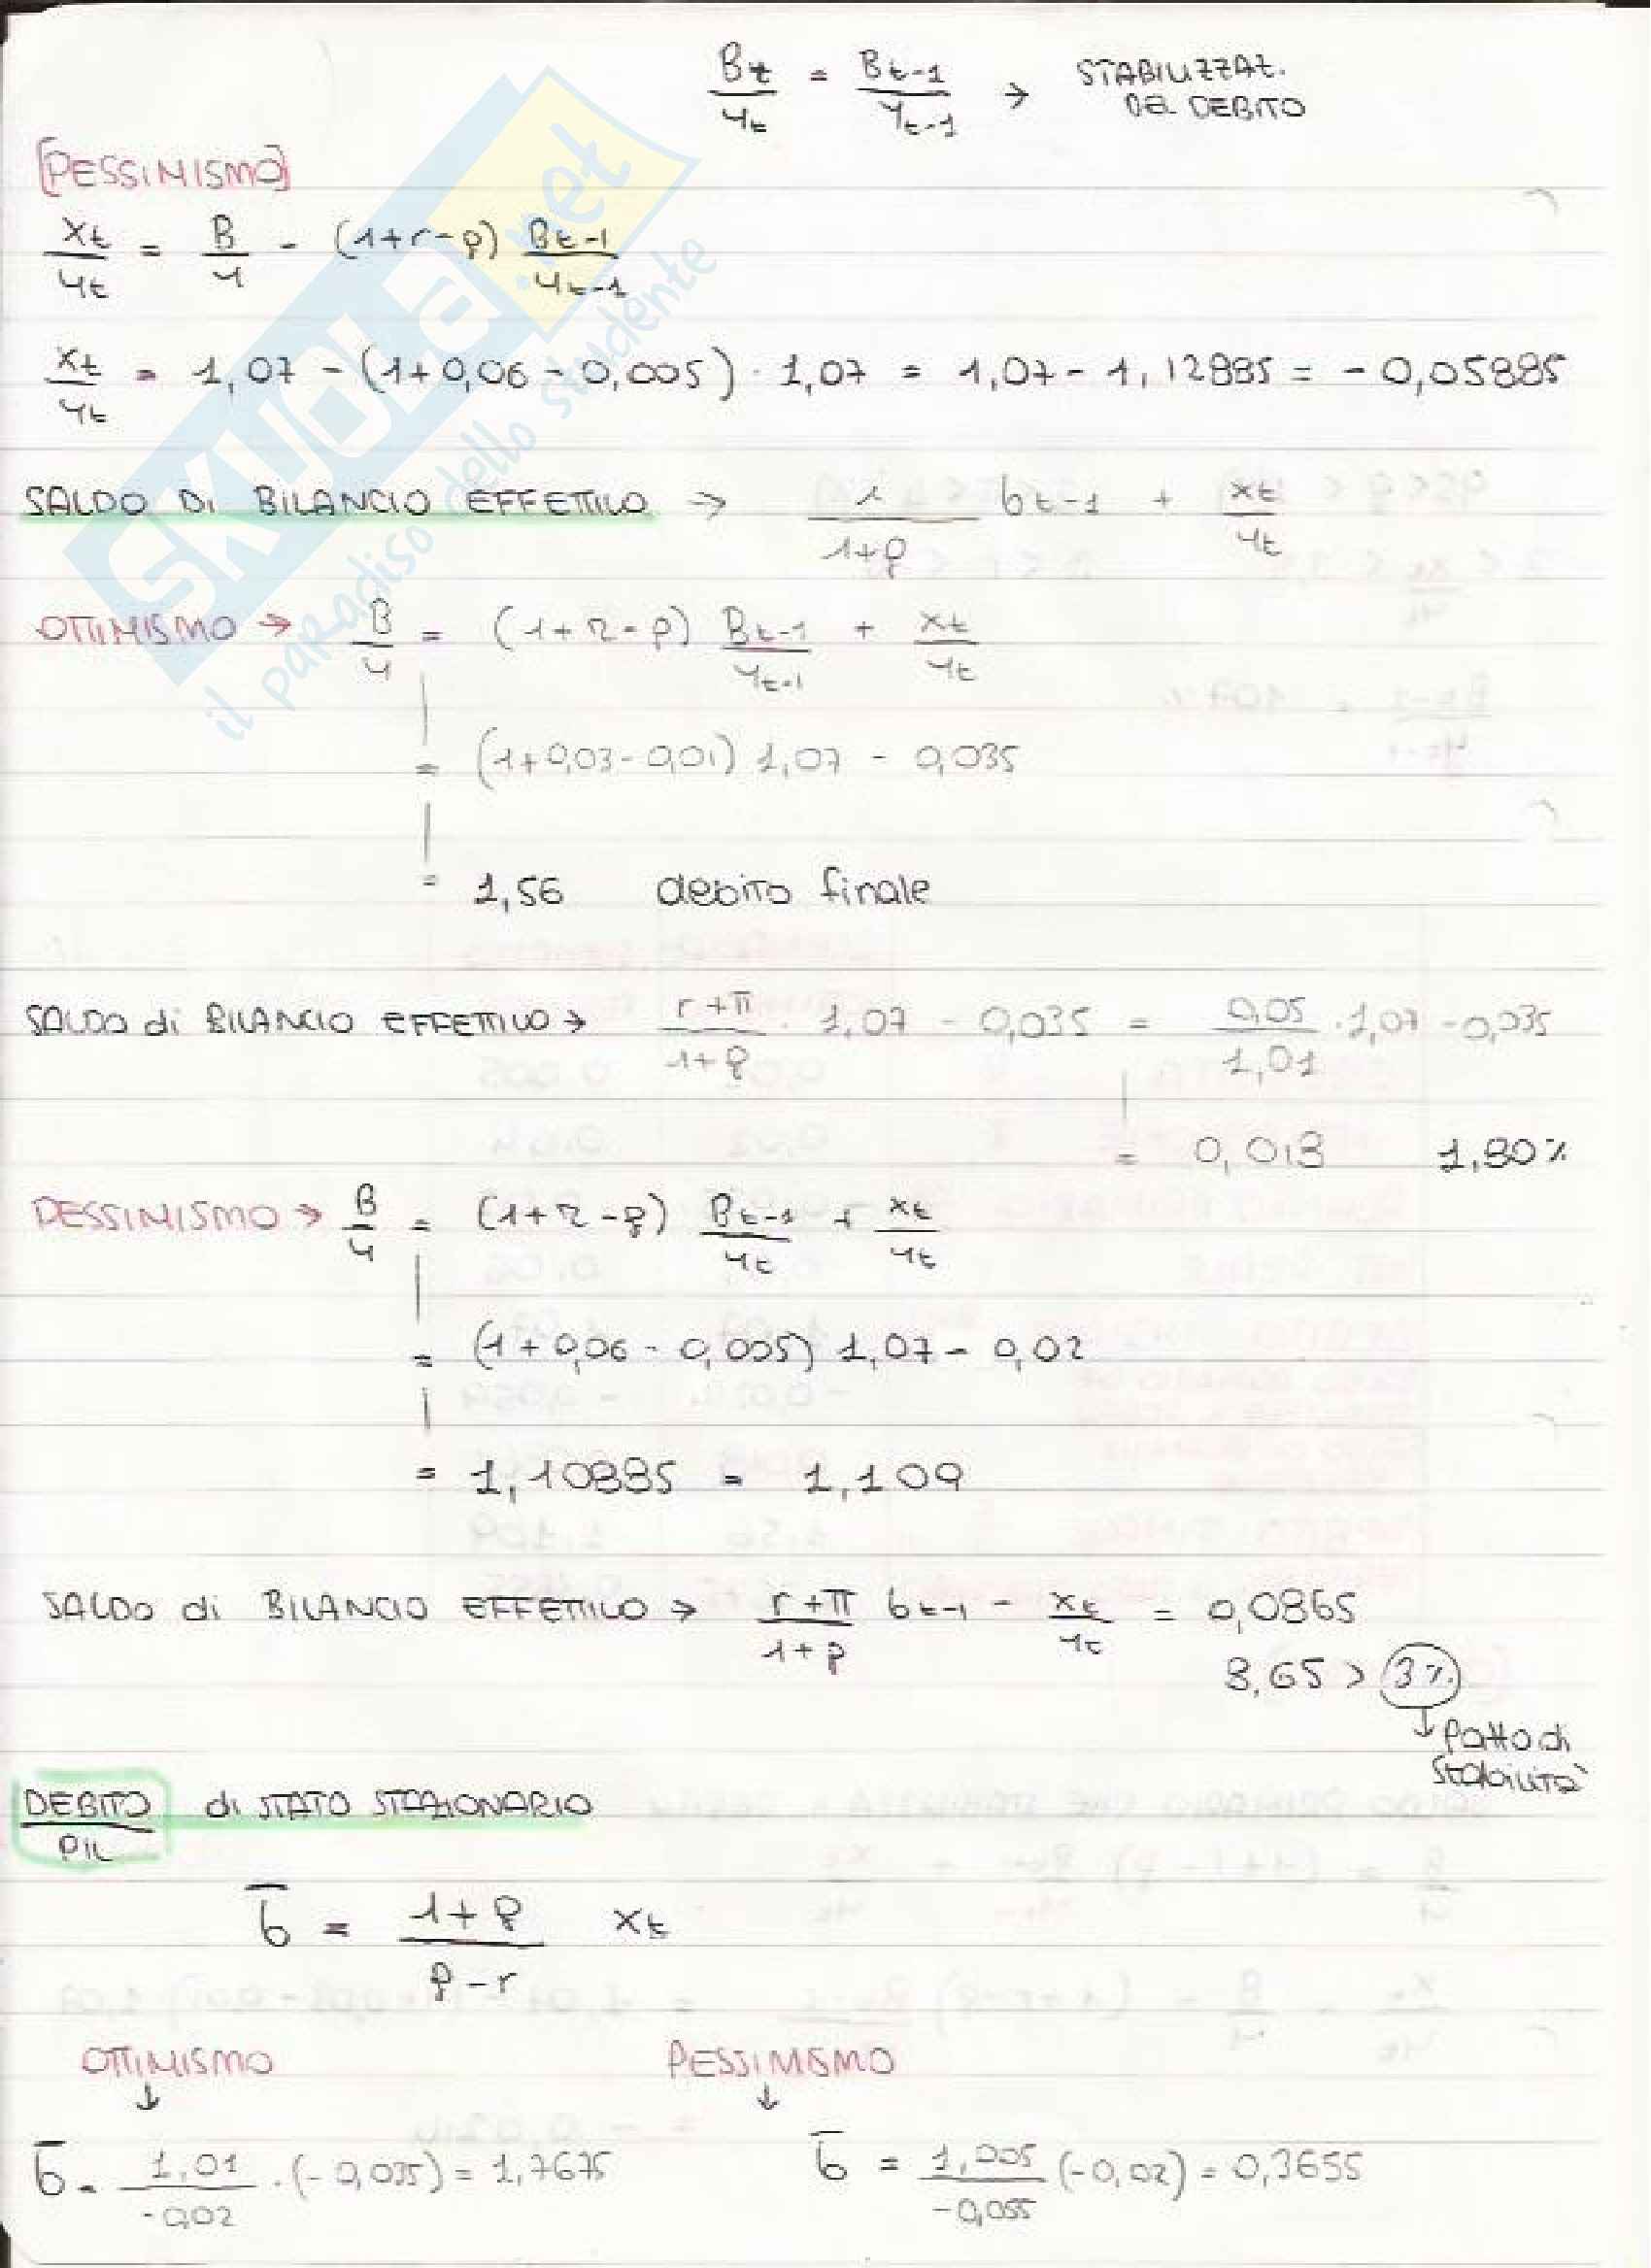 Bt/Yt = Bt-1/Yt-1 → STABILIZZAZ. DEL DEBITO
[PESSIMISMO]
xt/Yt = B/Y - (1+r-g) Bt-1/Yt-1
xt/Yt = 1,07 - (1+0,06-0,005) · 1,07 = 1,07 - 1,12885 = - 0,05885
SALDO DI BILANCIO EFFETTIVO → i/1+g bt-1 + xt/Yt
OTTIMISMO → B/Y = (1+r-g) Bt-1/Yt-1 + xt/Yt
= (1+0,03-0,01) 1,07 - 0,035
= 1,56 debito finale
SALDO di BILANCIO EFFETTIVO → r+π/1+g · 1,07 - 0,035 = 0,05/1,01 · 1,07 - 0,035
= 0,018 1,80%
PESSIMISMO → B/Y = (1+r-g) Bt-1/Yt + xt/Yt
= (1+0,06-0,005) 1,07 - 0,02
= 1,10885 = 1,109
SALDO di BILANCIO EFFETTIVO → r+π/1+g bt-1 - xt/Yt = 0,0865
8,65 > 3%
↓ Patto di
stabilità
DEBITO/PIL di STATO STAZIONARIO
b̅ = 1+g/g-r xt
OTTIMISMO PESSIMISMO
↓ ↓
b̅ = 1,01/-0,02 · (-0,035) = 1,7675 b̅ = 1,005/-0,055 (-0,02) = 0,3655
SKUOLA.net
il paradiso dello studente